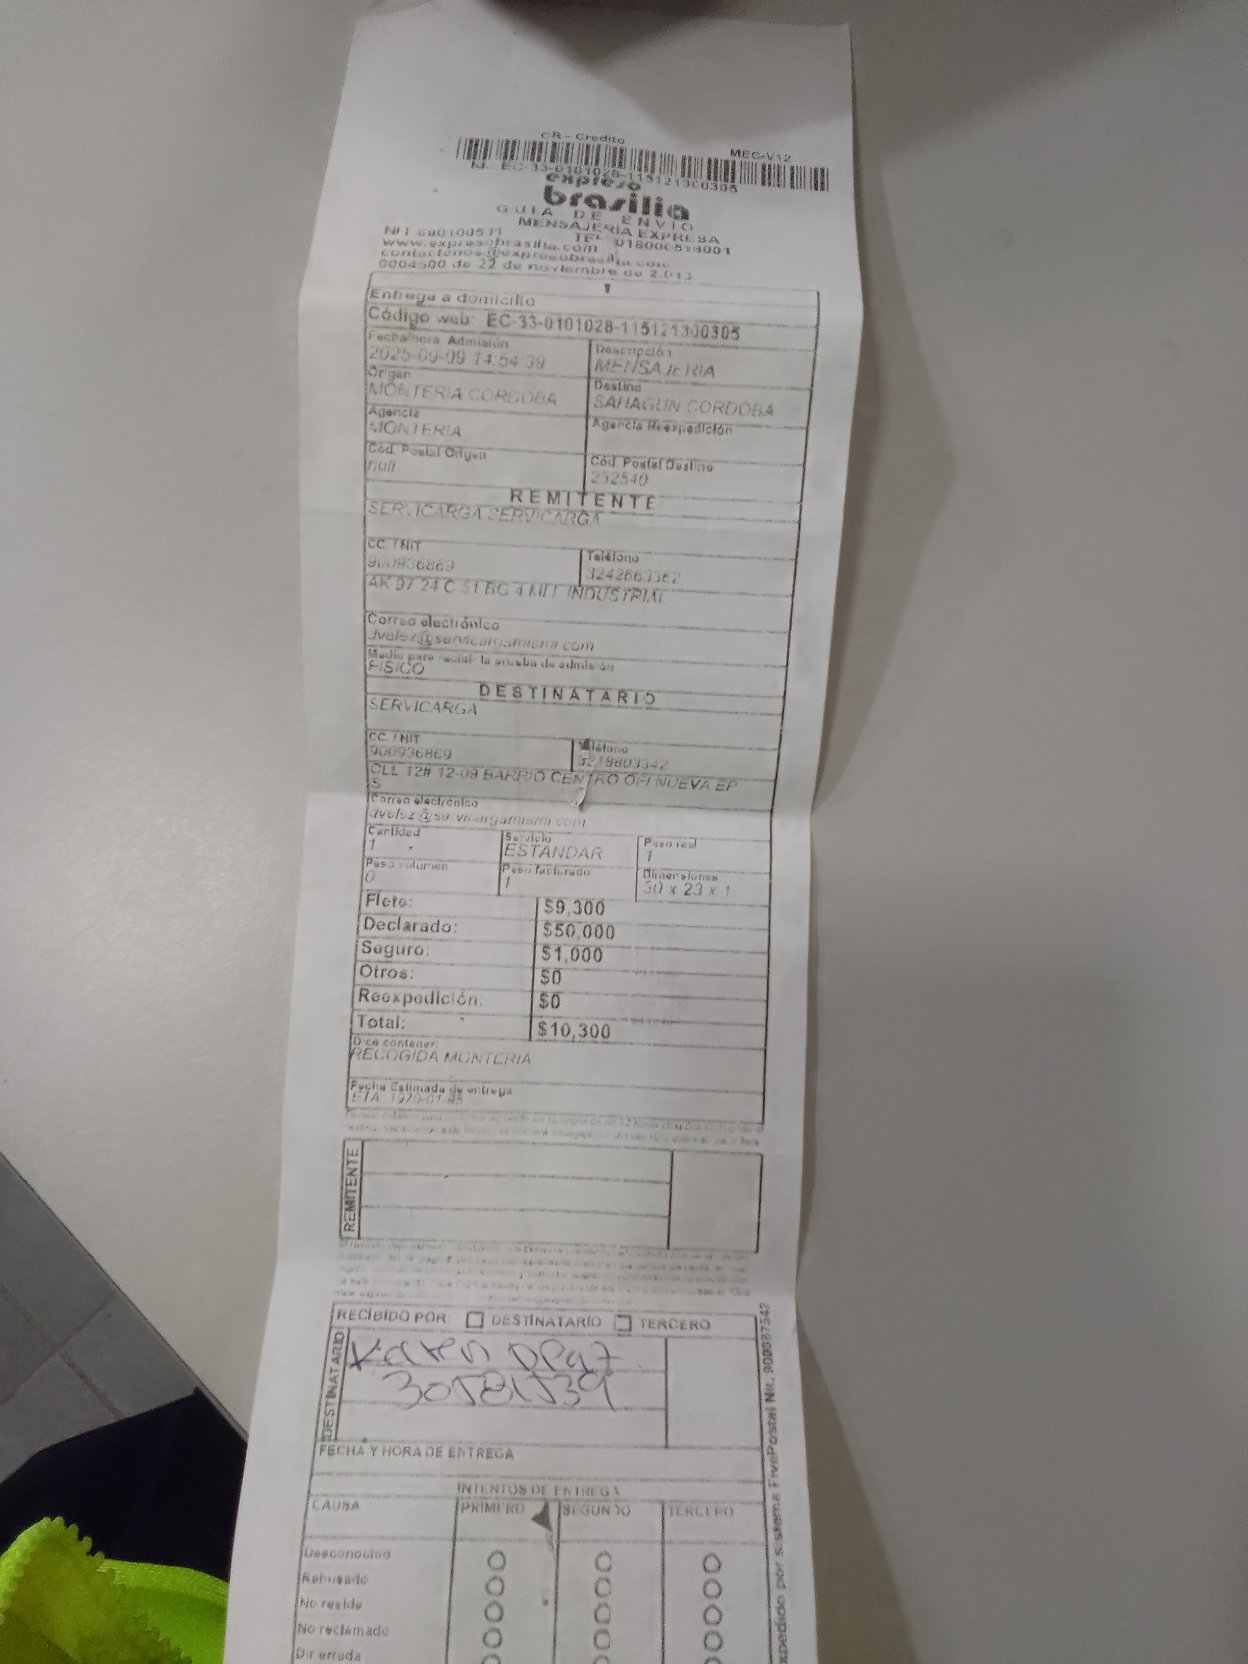 CR - Credito
MEC-V12
Id.: EC-33-0101028-115121300305
expreso
brasilia
GUIA DE ENVIO
MENSAJERIA EXPRESA
NIT 890100531 TEL 018000518001
www.expresobrasilia.com
contactenos@expresobrasilia.com
0004500 de 22 de noviembre de 2.013
Entrega a domicilio
Código web: EC-33-0101028-115121300305
Fecha/hora Admisión
2025-09-09 14:54:39
Descripción
MENSAJERIA
Origen
MONTERIA CORDOBA
Destino
SAHAGUN CORDOBA
Agencia
MONTERIA
Agencia Reexpedición
Cód. Postal Origen
null
Cód. Postal Destino
232540
REMITENTE
SERVICARGA SERVICARGA
CC. / NIT
900936869
Teléfono
3242663362
AK 97 24 C 51 BG 4 MLL INDUSTRIAL
Correo electrónico
dvelez@servicargamiami.com
Medio para recibir la prueba de admisión
FISICO
DESTINATARIO
SERVICARGA
CC. / NIT
900936869
Teléfono
3218803342
CLL 12# 12-09 BARRIO CENTRO OFI NUEVA EP
S
Correo electrónico
dvelez@servicargamiami.com
Cantidad
1
Servicio
ESTANDAR
Peso real
1
Peso volumen
0
Peso facturado
1
Dimensiones
30 x 23 x 1
Flete: $9,300
Declarado: $50,000
Seguro: $1,000
Otros: $0
Reexpedición: $0
Total: $10,300
Dice contener:
RECOGIDA MONTERIA
Fecha Estimada de entrega
REMITENTE
RECIBIDO POR: DESTINATARIO TERCERO
DESTINATARIO
Karen Dpaz
30581539
FECHA Y HORA DE ENTREGA
INTENTOS DE ENTREGA
CAUSA PRIMERO SEGUNDO TERCERO
Desconocido
Rehusado
No reside
No reclamado
Dir errada
expedido por sistema FivePostal Nit. 900087342